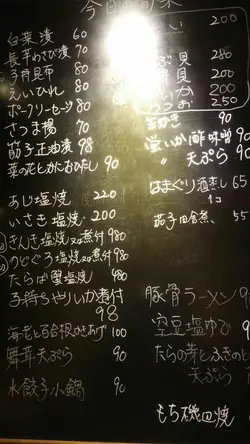 今日の
白菜漬 60
長芋わさび漬 70
子持昆布 80
えいひれ 80
ポークソーセージ 80
さつま揚 70
筋子正油漬 98
菜の花とかにおひたし 90
あじ塩焼 220
いさき塩焼 200
さんき塩焼又は煮付 980
のどぐろ塩焼又は煮付 980
たらば蟹塩焼 980
子持ちやりいか煮付
98
海老と百合根かきあげ 100
舞茸天ぷら 90
水餃子小鍋 90
い 200
ぶ貝 280
貝 200
いか 200
お 250
生かき 90
蛍いか酢味噌 90
〃 天ぷら 90
はまぐり酒蒸し 65
1コ
茄子田舎煮 55
豚骨ラーメン 9
空豆塩ゆで 9
たらの芽とふきの
天ぷら
もち磯辺焼